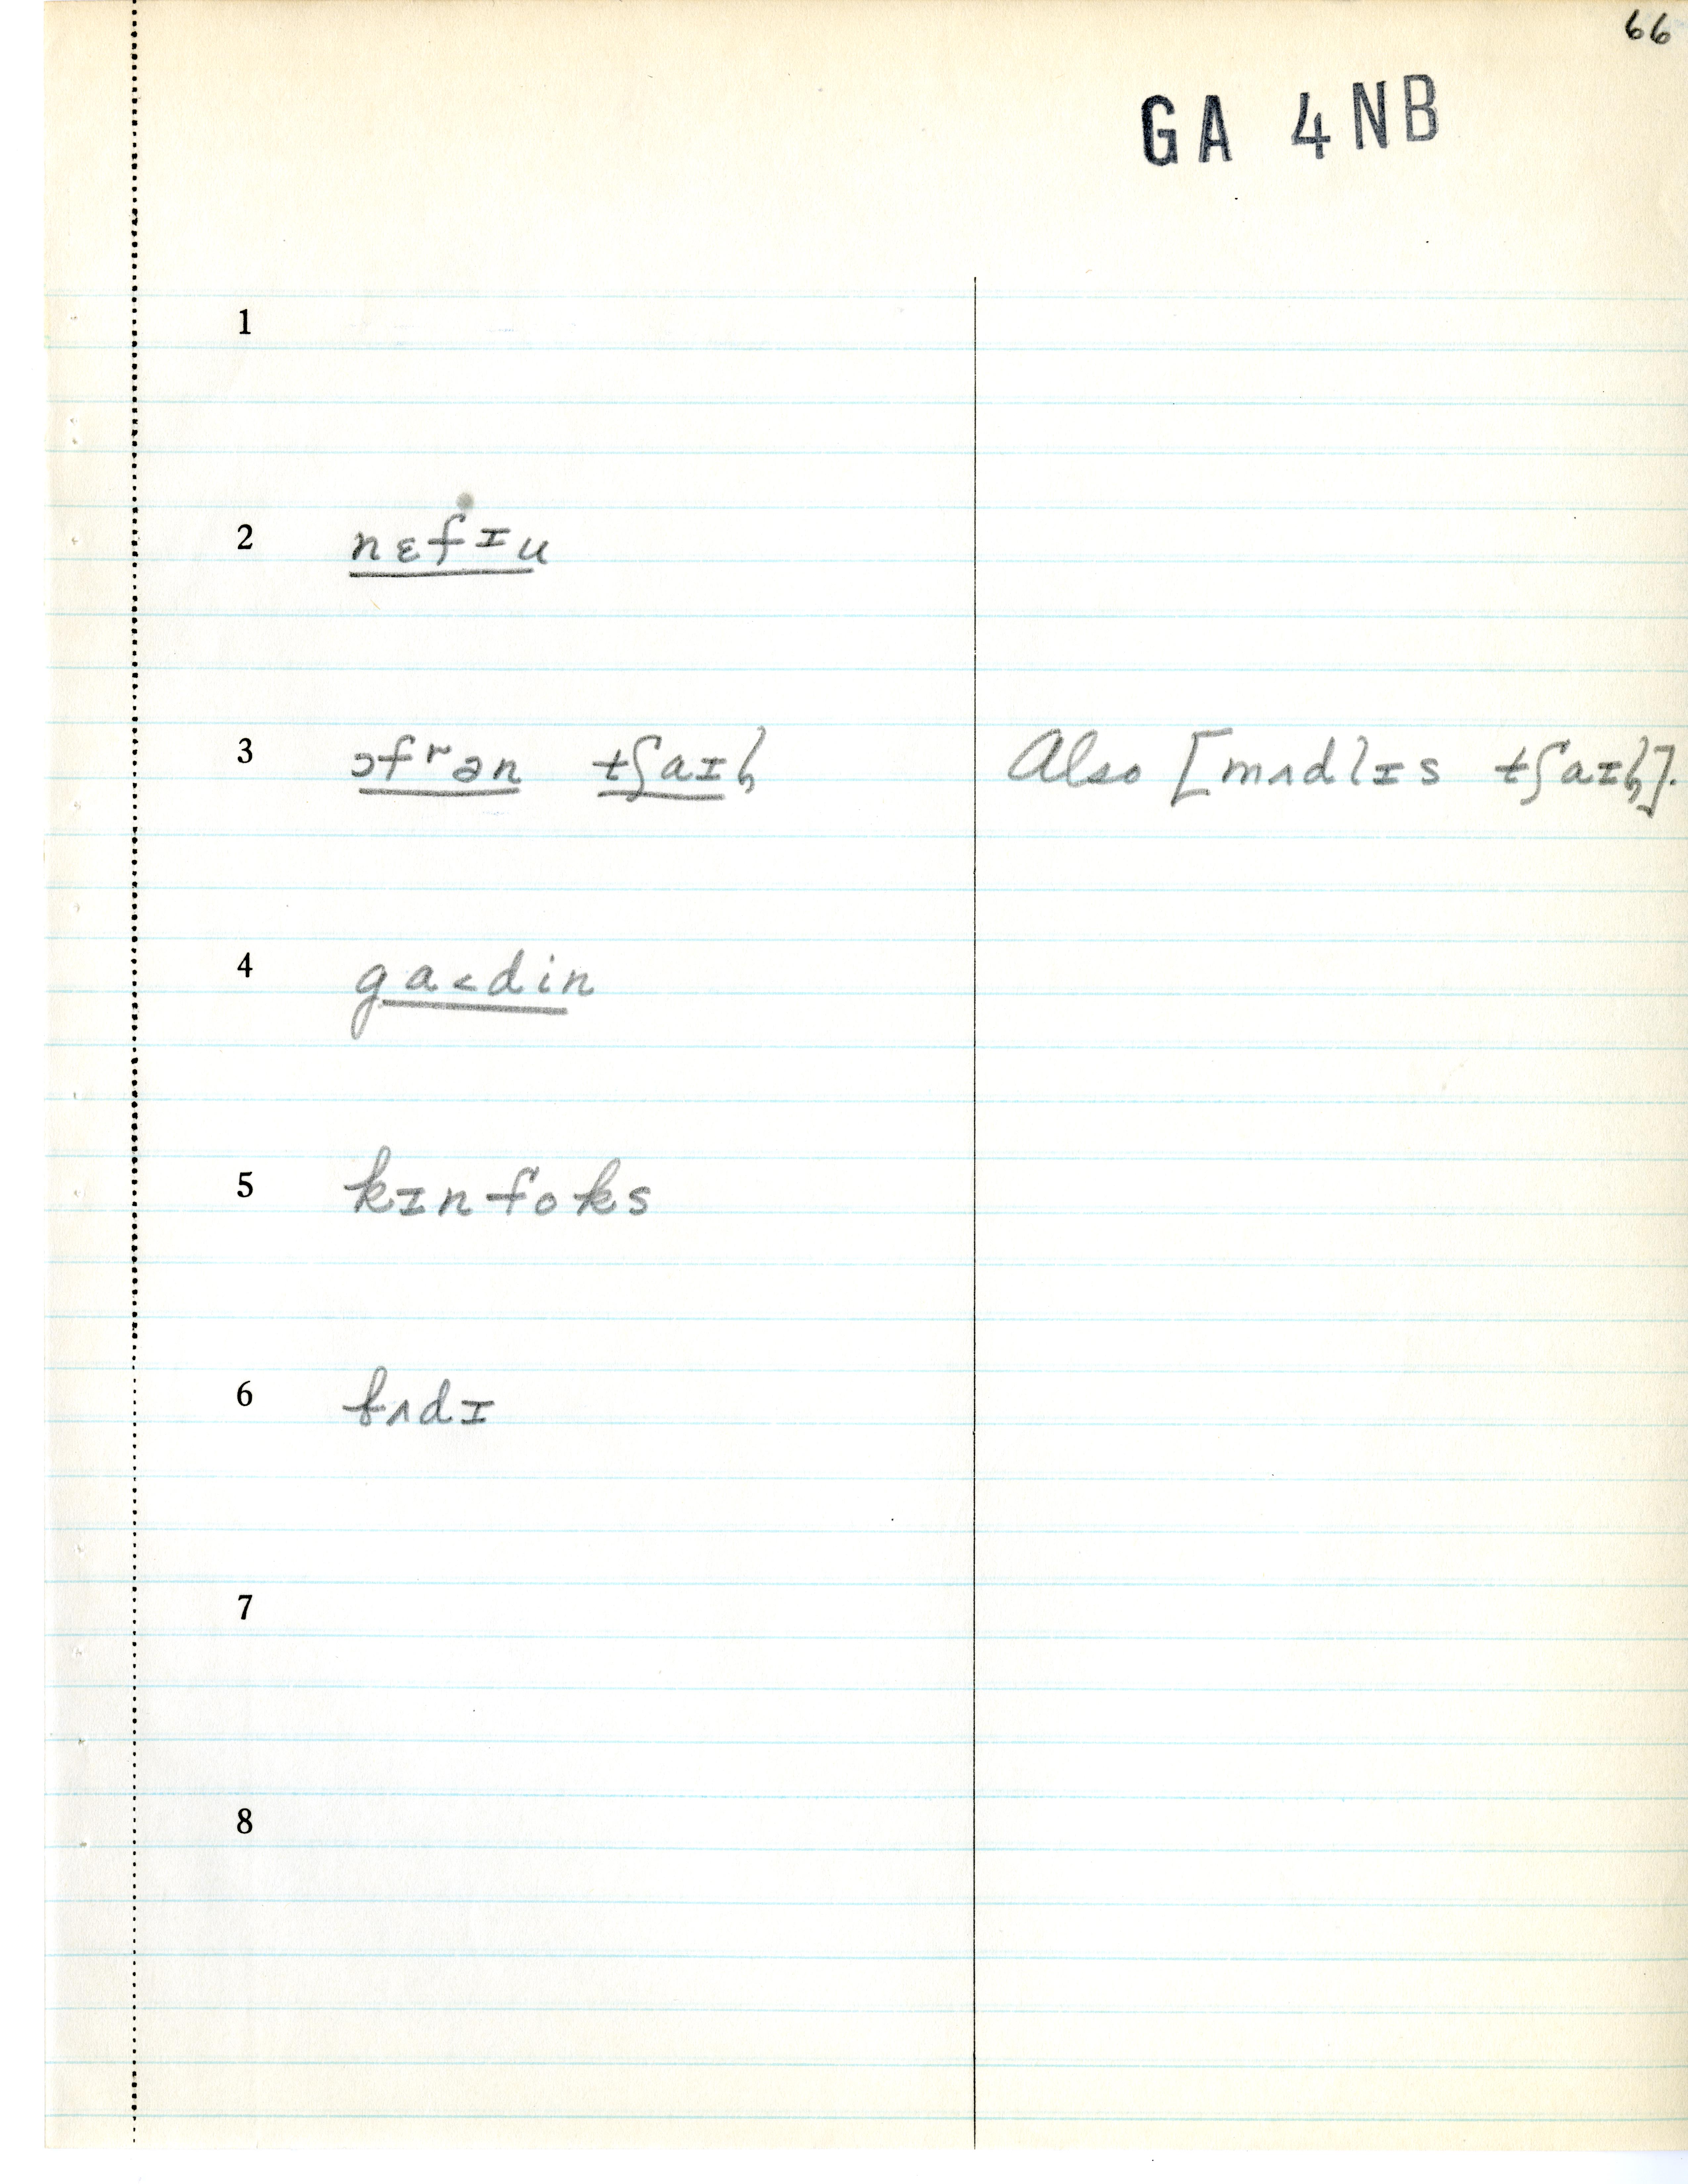 66
GA 4NB
1
2 nɛfɪu
3 ɔfʳən tʃaɪɭ Also [mʌðlɪs tʃaɪɭ].
4 ga˂din
5 kɪnfoks
6 bʌdɪ
7
8